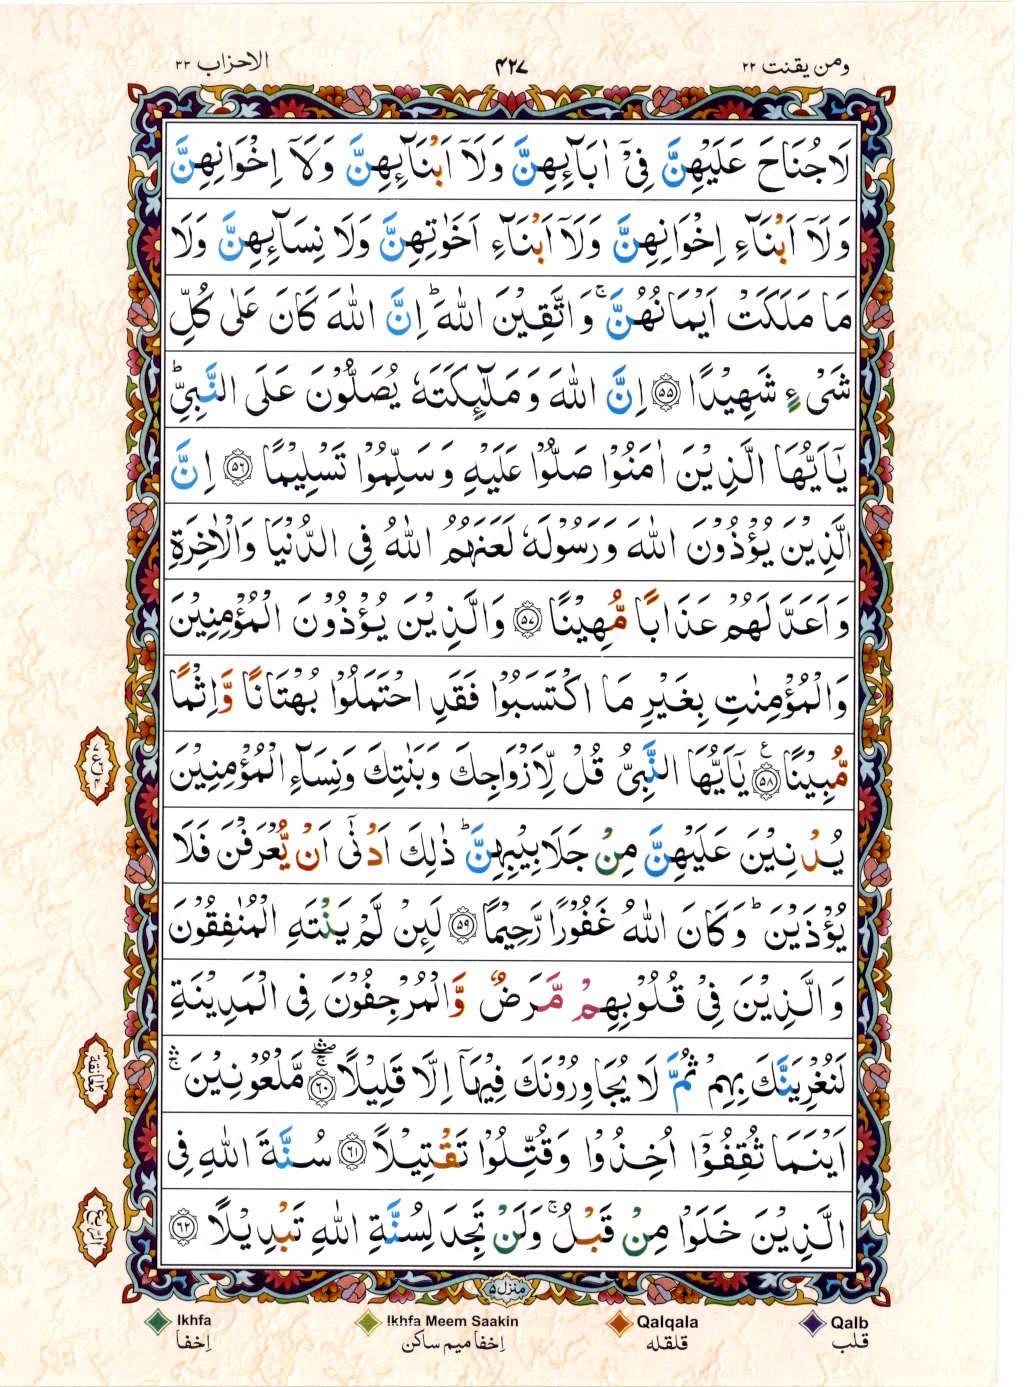 ومن يقنت ٢٢
٤٢٧
الاحزاب ٣٣
لَا جُنَاحَ عَلَيْهِنَّ فِىْٓ اٰبَآئِهِنَّ وَلَآ اَبْنَآئِهِنَّ وَلَآ اِخْوَانِهِنَّ
وَلَآ اَبْنَآءِ اِخْوَانِهِنَّ وَلَآ اَبْنَآءِ اَخَوٰتِهِنَّ وَلَا نِسَآئِهِنَّ وَلَا
مَا مَلَكَتْ اَيْمَانُهُنَّ ۚ وَاتَّقِيْنَ اللّٰهَ ؕ اِنَّ اللّٰهَ كَانَ عَلٰى كُلِّ
شَىْءٍ شَهِيْدًا ﴿۵۵﴾ اِنَّ اللّٰهَ وَمَلٰٓئِكَتَهٗ يُصَلُّوْنَ عَلَى النَّبِىِّ ؕ
يٰٓاَيُّهَا الَّذِيْنَ اٰمَنُوْا صَلُّوْا عَلَيْهِ وَسَلِّمُوْا تَسْلِيْمًا ﴿۵۶﴾ اِنَّ
الَّذِيْنَ يُؤْذُوْنَ اللّٰهَ وَرَسُوْلَهٗ لَعَنَهُمُ اللّٰهُ فِى الدُّنْيَا وَالْاٰخِرَةِ
وَاَعَدَّ لَهُمْ عَذَابًا مُّهِيْنًا ﴿۵۷﴾ وَالَّذِيْنَ يُؤْذُوْنَ الْمُؤْمِنِيْنَ
وَالْمُؤْمِنٰتِ بِغَيْرِ مَا اكْتَسَبُوْا فَقَدِ احْتَمَلُوْا بُهْتَانًا وَّاِثْمًا
مُّبِيْنًا ﴿۵۸﴾ ع يٰٓاَيُّهَا النَّبِىُّ قُلْ لِّاَزْوَاجِكَ وَبَنٰتِكَ وَنِسَآءِ الْمُؤْمِنِيْنَ
يُدْنِيْنَ عَلَيْهِنَّ مِنْ جَلَابِيْبِهِنَّ ؕ ذٰلِكَ اَدْنٰٓى اَنْ يُّعْرَفْنَ فَلَا
يُؤْذَيْنَ ؕ وَكَانَ اللّٰهُ غَفُوْرًا رَّحِيْمًا ﴿۵۹﴾ لَئِنْ لَّمْ يَنْتَهِ الْمُنٰفِقُوْنَ
وَالَّذِيْنَ فِىْ قُلُوْبِهِمْ مَّرَضٌ وَّالْمُرْجِفُوْنَ فِى الْمَدِيْنَةِ
معانقة
لَنُغْرِيَنَّكَ بِهِمْ ثُمَّ لَا يُجَاوِرُوْنَكَ فِيْهَآ اِلَّا قَلِيْلًا ﴿۶۰﴾ مَّلْعُوْنِيْنَ ۛۚ
اَيْنَمَا ثُقِفُوْٓا اُخِذُوْا وَقُتِّلُوْا تَقْتِيْلًا ﴿۶۱﴾ سُنَّةَ اللّٰهِ فِى
الَّذِيْنَ خَلَوْا مِنْ قَبْلُ ۚ وَلَنْ تَجِدَ لِسُنَّةِ اللّٰهِ تَبْدِيْلًا ﴿۶۲﴾
منزل ۵
Ikhfa
Ikhfa Meem Saakin
Qalqala
Qalb
اِخفا
اِخفا ميم ساكن
قلقله
قلب